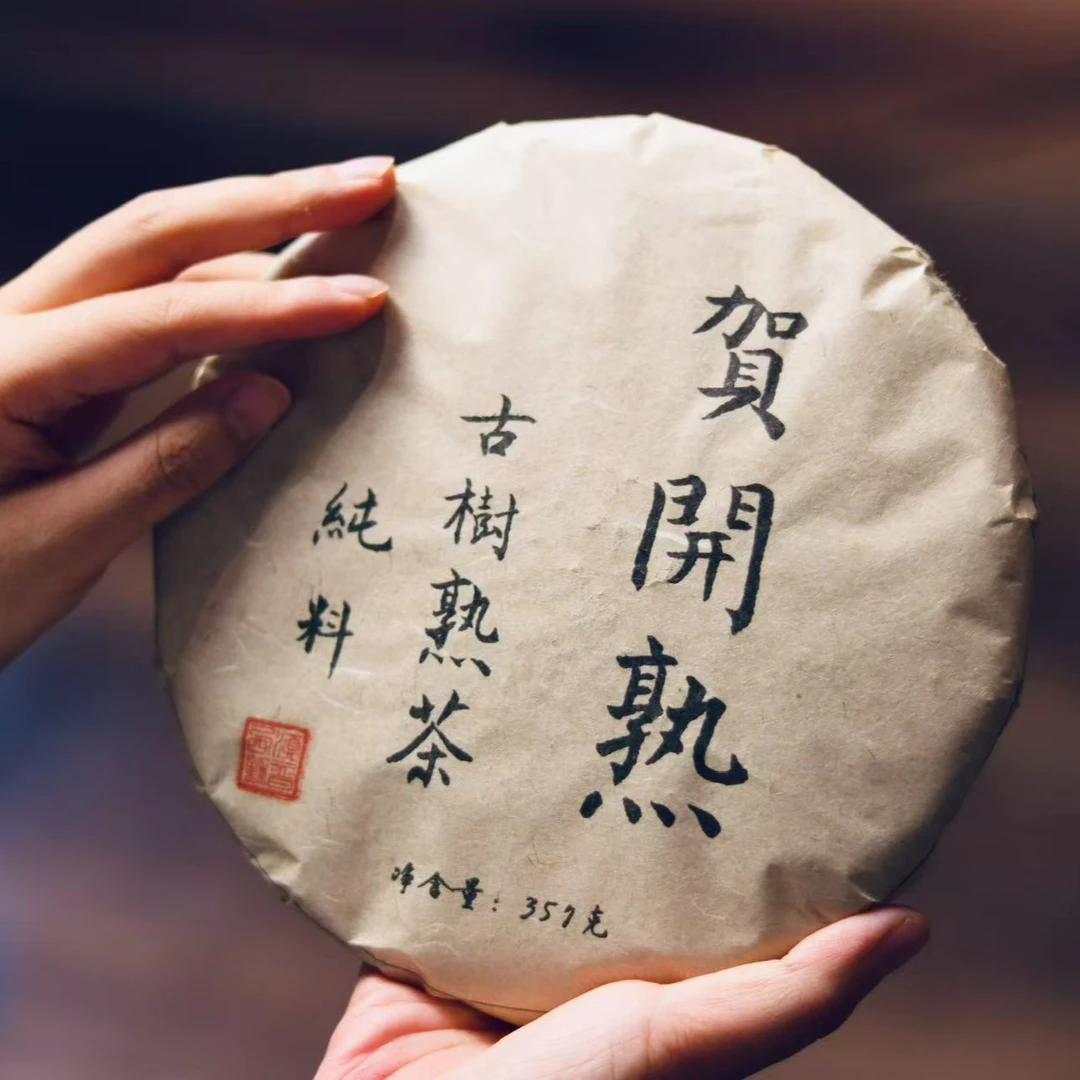 賀開熟
古樹熟茶
純料
净含量：357克